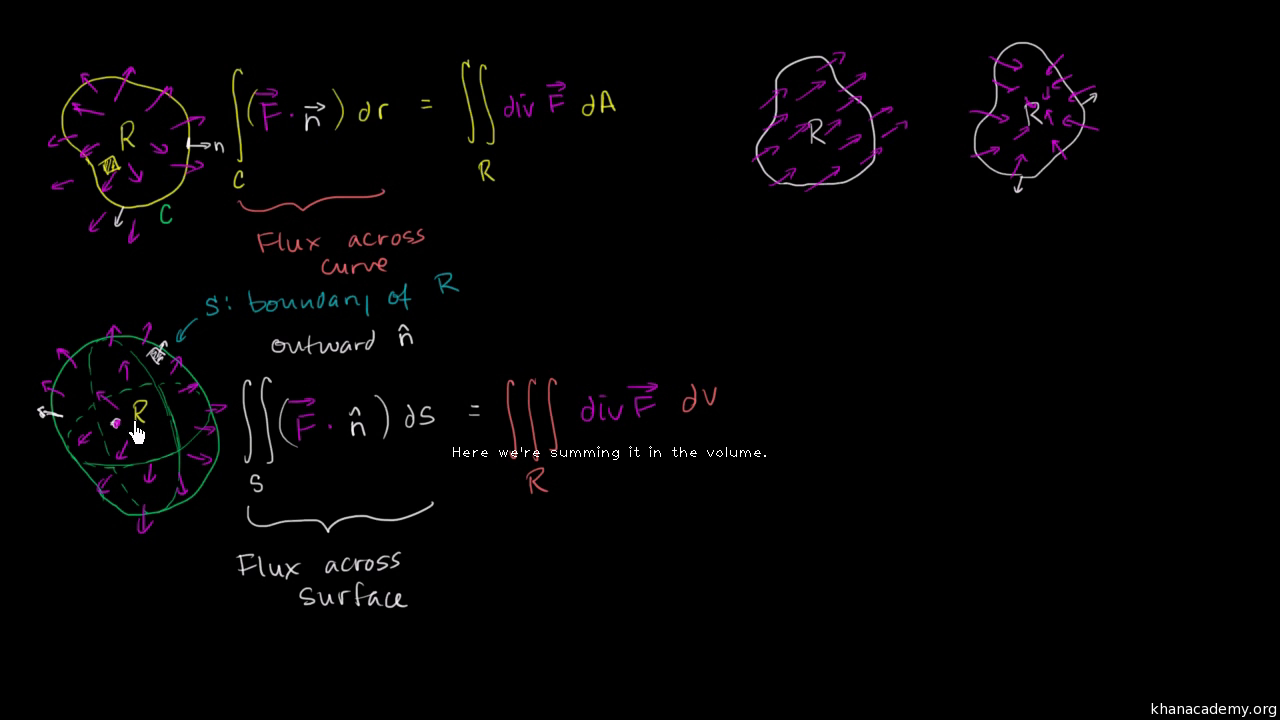 R
n
C
∫ (F⃗ · n⃗) dr = ∬ div F⃗ dA
C
R
Flux across
curve
R
R
S: boundary of R
outward n̂
R
∬ (F⃗ · n̂) dS = ∭ div F⃗ dV
Here we're summing it in the volume.
S
R
Flux across
surface
khanacademy.org